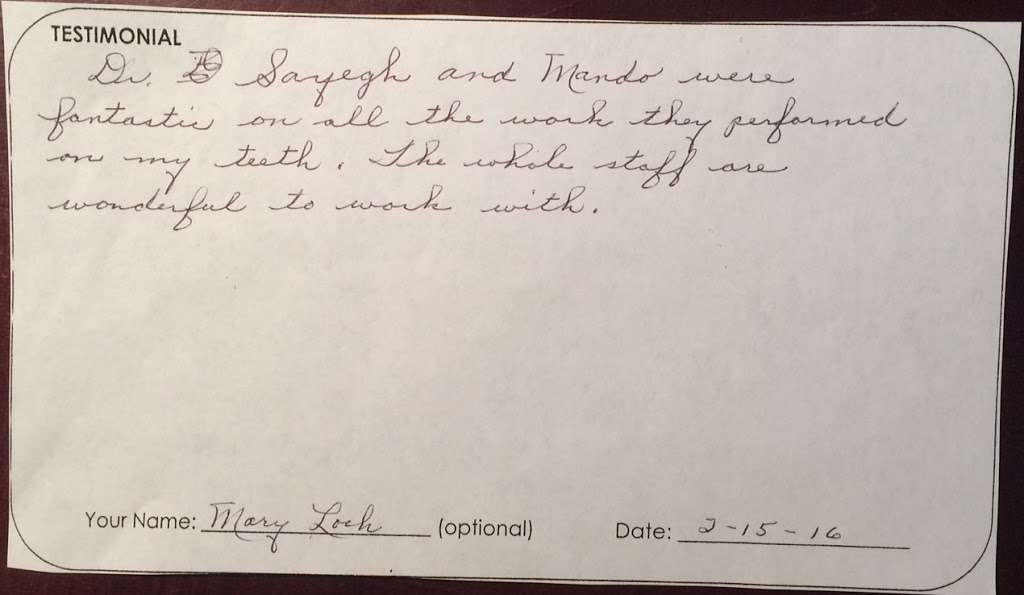 TESTIMONIAL
Dr. Sayegh and Mando were
fantastic on all the work they performed
on my teeth. The whole staff are
wonderful to work with.
Your Name: Mary Loch (optional) Date: 2-15-16